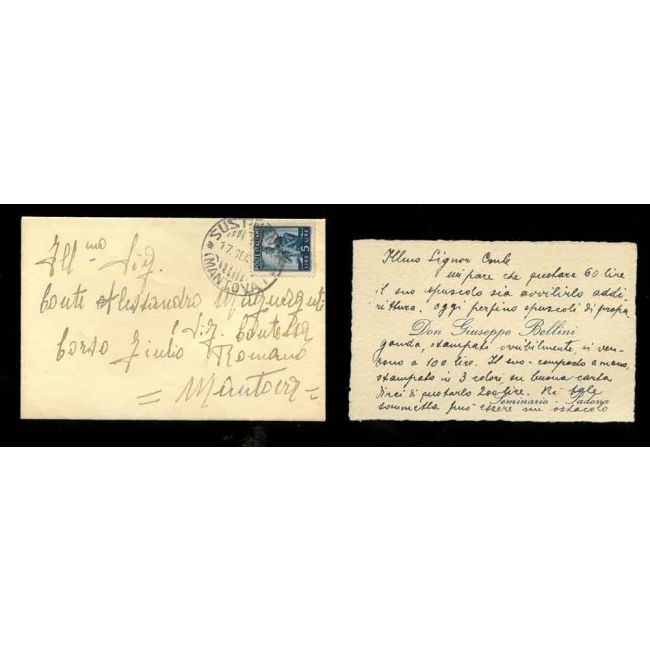 SUSTI
17 DEC
(MANTOVA
POSTE ITALIANE
LIRE 5 LIRE
Ill.mo Sig.
Conte Alessandro
e Sig. Contessa
Corso Giulio Romano
= Mantova =
Illmo Signor Conte
mi pare che quotare 60 lire
il suo opuscolo sia avvilirlo addi
rittura. Oggi perfino opuscoli di propa
Don Giuseppe Bellini
ganda, stampati orribilmente, si ven-
dono a 100 lire. Il suo - composto a mano,
stampato in 3 colori su buona carta
direi di quotarlo 200 lire. Nè tale
Seminario - Padova
sommetta può essere un ostacolo